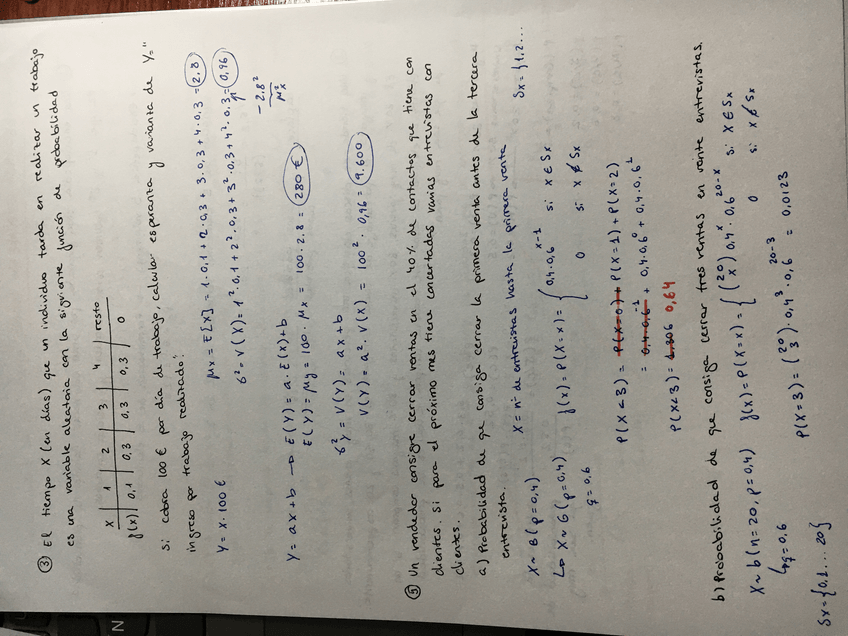 ③ El tiempo X (en días) que un individuo tarda en realizar un trabajo
es una variable aleatoria con la siguiente función de probabilidad
X | 1 | 2 | 3 | 4 | resto
f(x) | 0,1 | 0,3 | 0,3 | 0,3 | 0
Si cobra 100€ por día de trabajo, calcular esperanza y varianza de Y="
ingreso por trabajo realizado".
μx = E[X] = 1·0,1 + 2·0,3 + 3·0,3 + 4·0,3 = 2.8
Y = X·100€
σ² = V(X) = 1²·0,1 + 2²·0,3 + 3²·0,3 + 4²·0,3 = 0,96
-2.8²
μ²x
Y = ax+b → E(Y) = a·E(X)+b
E(Y) = μy = 100·μx = 100·2.8 = 280€
σ²y = V(Y) = ax+b
V(Y) = a²·V(X) = 100²·0,96 = 9.600
⑤ Un vendedor consigue cerrar ventas en el 40% de contactos que tiene con
clientes. Si para el próximo mes tiene concertadas varias entrevistas con
clientes.
a) Probabilidad de que consiga cerrar la primera venta antes de la tercera
entrevista.
X = nº de entrevistas hasta la primera venta
Sx = {1,2...
X~B(p=0,4)
↳ X~G(p=0,4)
q=0,6
f(x) = P(X=x) = { 0,4·0,6^x-1 si X∈Sx
0 si X∉Sx
P(X<3) = P(X=0) + P(X=1) + P(X=2)
= 0,4·0,6^-1 + 0,4·0,6^0 + 0,4·0,6^1
P(X<3) = 0,64
b) Probabilidad de que consiga cerrar tres ventas en veinte entrevistas.
X~b(n=20, p=0,4)
↳q=0,6
f(x) = P(X=x) = { (20 x) 0,4^x·0,6^20-x si X∈Sx
0 si X∉Sx
Sx={0,1...20}
P(X=3) = (20 3)·0,4³·0,6^20-3 = 0,0123
N